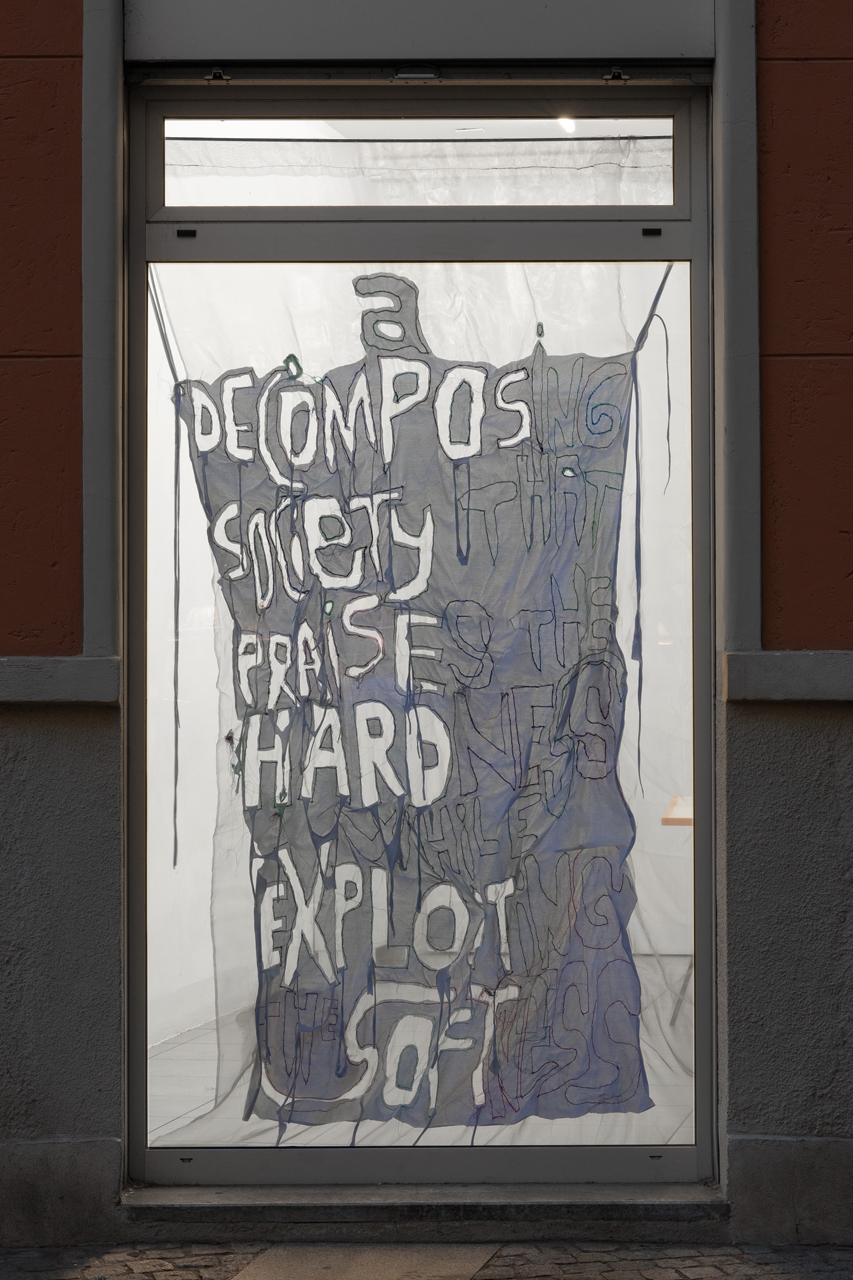 a
DECOMPOSING
SOCIETY THAT
PRAISES THE
HARDNESS
WHILE
EXPLOITING
THE SOFTNESS